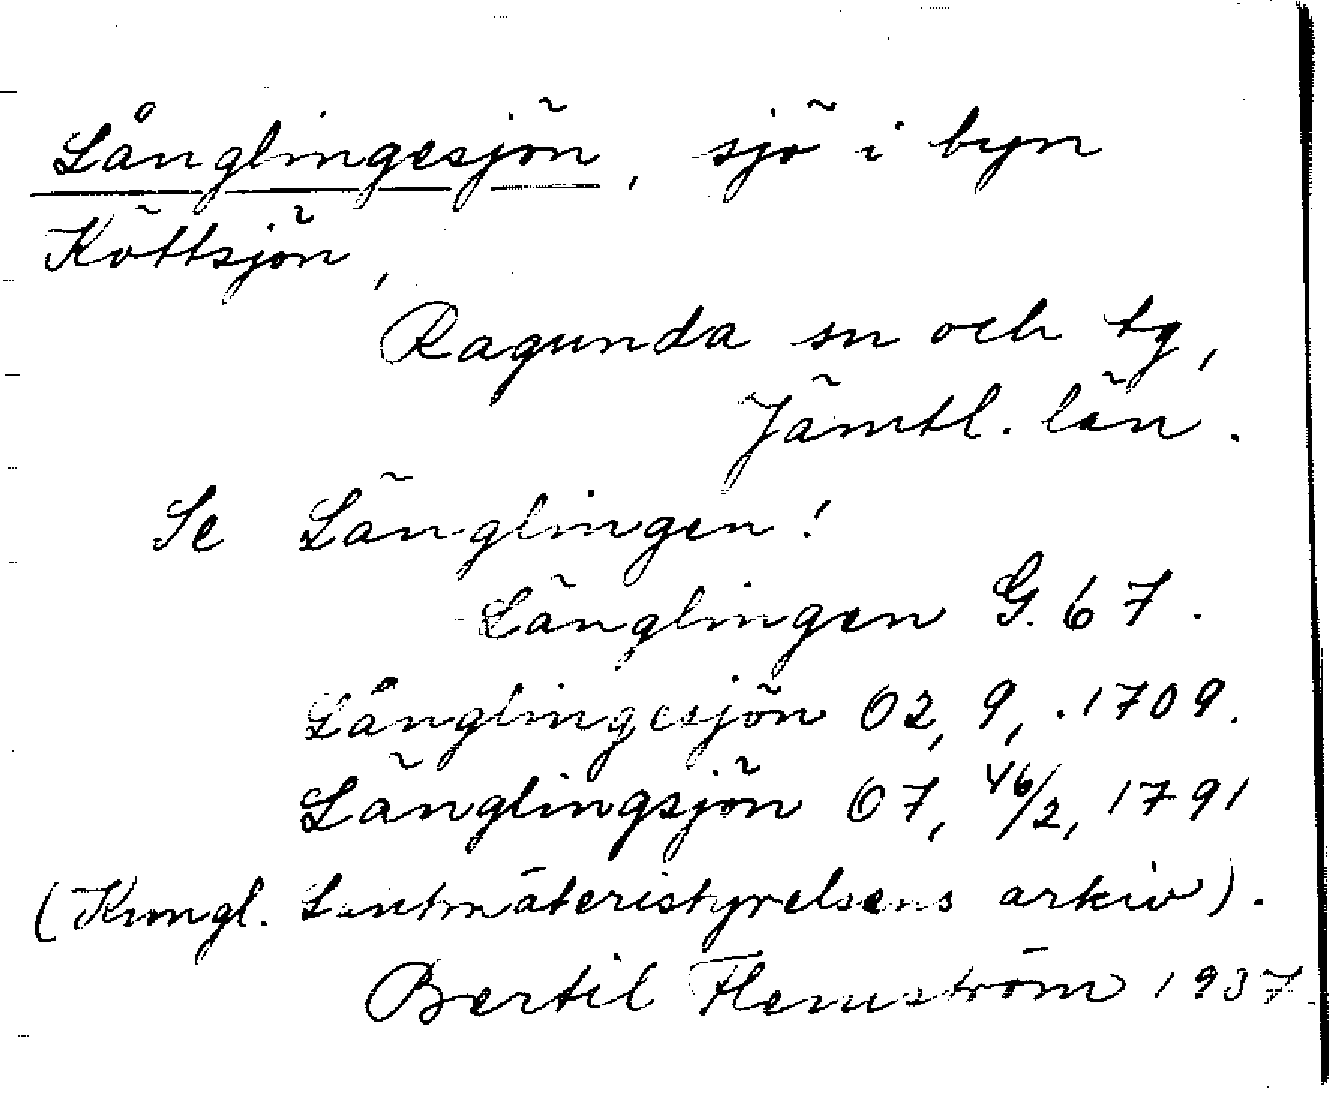 Långlingesjön, sjö i byn
Köttsjön,
Ragunda sn och tg,
Jämtl. län.
Se Länglingen!
Länglingen G. 67.
Långlingesjön 02, 9, 1709.
Länglingsjön 07, 46/2, 1791
(Kungl. Lantmäteristyrelsens arkiv).
Bertil Flemström 1937